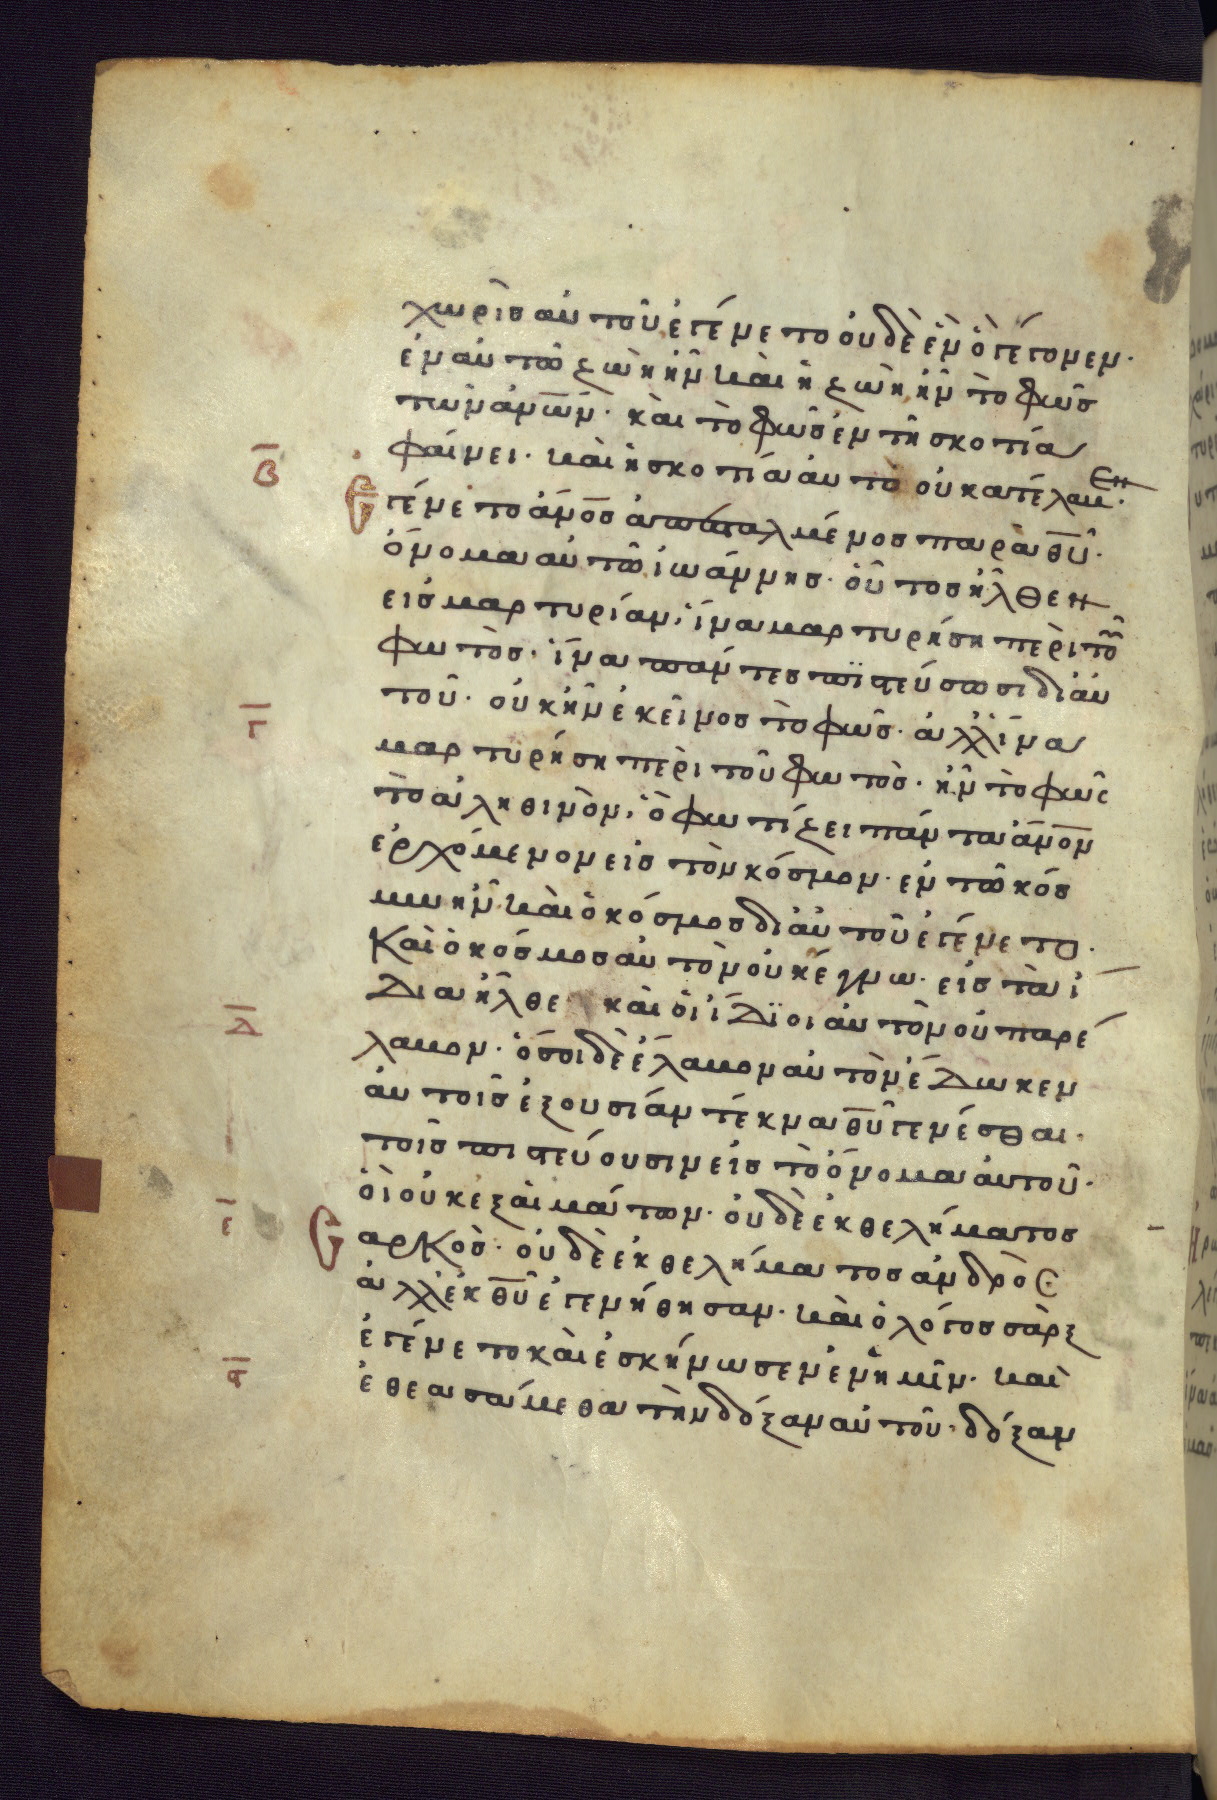 χωρὶσ αυτοῦ ἐγένετο οὐδὲ ἓν ὃ γέγονεν·
ἐν αυτῶ ζωὴ ἦν καὶ ἡ ζωὴ ἦν τὸ φῶσ
τῶν ἀν̅ω̅ν̅· καὶ τὸ φῶσ ἐν τῆ σκοτία
Β̅ φαίνει· καὶ ἡ σκοτία αυτὸ οὐ κατέλαβεν·
Ἐγένετο ἄν̅ο̅σ̅ ἀπεσταλμένοσ παρὰ θ̅υ̅·
ὄνομα αὐτῶ ἰωάννησ· οὗτοσ ἦλθεν
εἰσ μαρτυρίαν· ἵνα μαρτυρήση περὶ τοῦ
φωτὸσ· ἵνα πάντεσ πϊστεύσωσι δἰ αὐ
Γ̅ τοῦ· οὐκ ἦν ἐκεῖνοσ τὸ φῶσ· ἀλλ' ἵνα
μαρτυρήση περὶ τοῦ φωτὸσ· ἦν τὸ φῶσ
τὸ ἀληθινὸν· ὃ φωτίζει πάντα ἄν̅ο̅ν̅
ἐρχόμενον εἰσ τὸν κόσμον· ἐν τῶ κόσ
μω ἦν καὶ ὁ κόσμοσ δἰ αὐτοῦ ἐγένετο·
Καὶ ὁ κόσμοσ αυτὸν οὐκ ἔγνω· εἰσ τὰ ἴ
Δ̅ δια ἦλθε· καὶ οἱ ἴδϊοι αυτὸν οὐ παρέ
λαβον· ὅσοι δὲ ἔλαβον αυτὸν ἔδωκεν
αυτοῖσ ἐξουσίαν τέκνα θ̅υ̅ γενέσθαι·
τοῖσ πιστεύουσιν εἰσ τὸ ὄνομα αὐτοῦ·
ε̅ οἳ οὐκ ἐξ αἱμάτων· οὐδὲ ἐκ θελήματοσ
σαρκὸσ· οὐδὲ ἐκ θελήματοσ ἀνδρὸσ
ἀλλ' ἐκ θ̅υ̅ ἐγενήθησαν· καὶ ὁ λόγοσ σὰρξ
ϛ̅ ἐγένετο καὶ ἐσκήνωσεν ἐν ἡμῖν· καὶ
ἐθεασάμεθα τὴν δόξαν αὐτοῦ· δόξαν